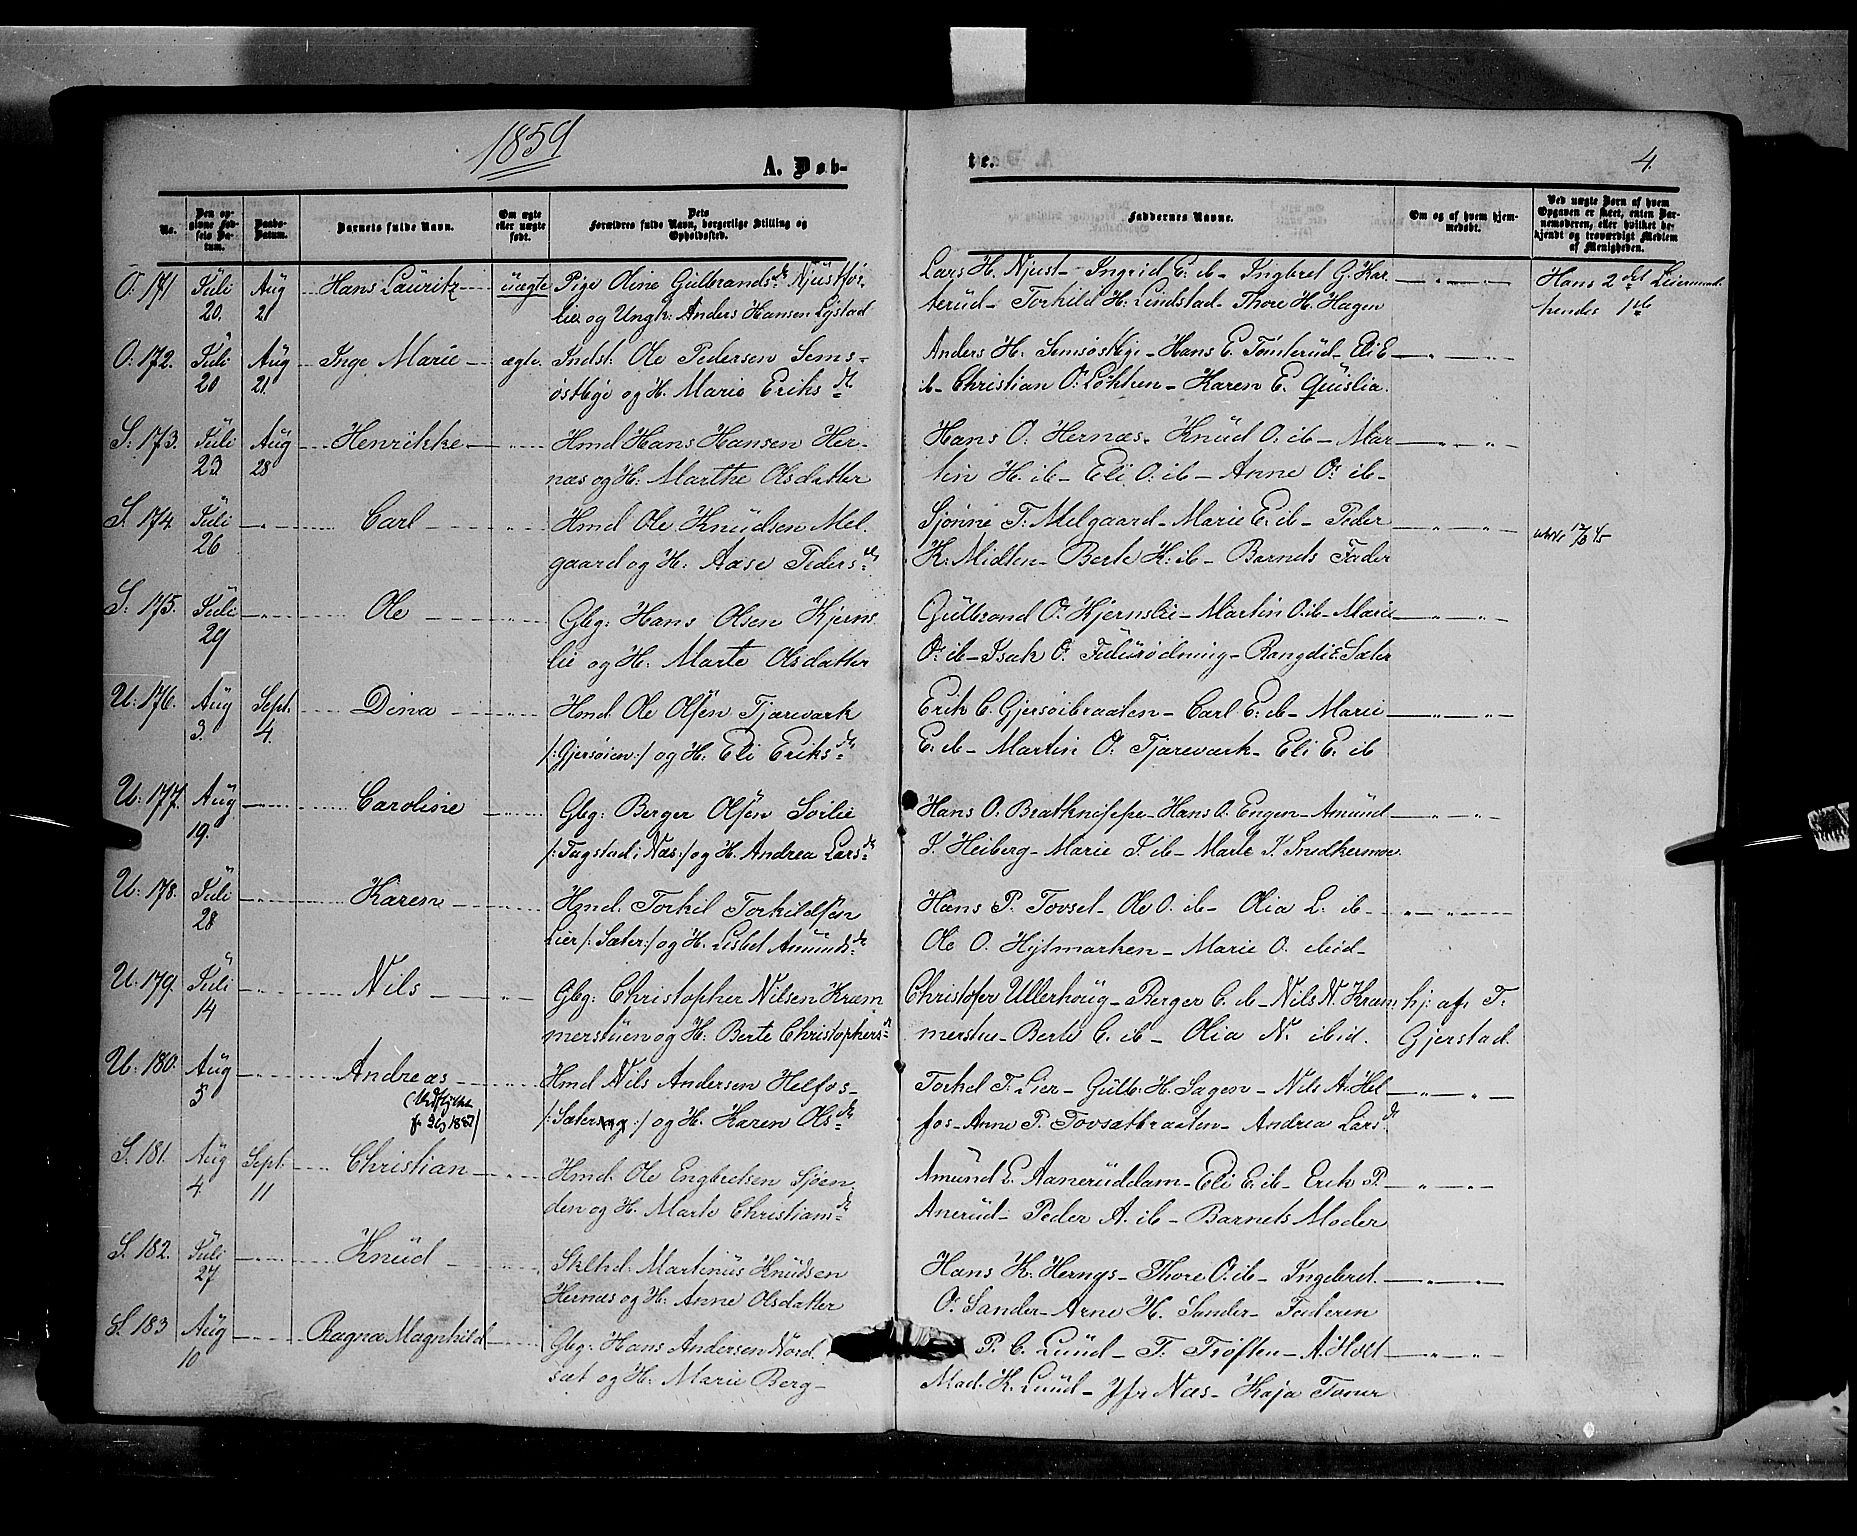 1859
A. Døb-
te.
4.
No.
Den opgivne Fødsels Datum.
Daabs-Datum.
Barnets fulde Navn.
Om ægte eller uægte født.
Dets Forældres fulde Navn, borgerlige Stilling og Opholdssted.
Faddernes Navne.
Om og af hvem hjemmedøbt.
Ved uægte Børn af hvem Opgaven er skeet, enten Barnemoderen, eller hvilket bekjendt og troværdigt Medlem af Menigheden.
O: 171 Juli 20. Aug 21 Hans Lauritz uægte Pige Oline Gulbrandsdr Njustlør-
lie og Ungk: Anders Hansen Lystad
Lars H. Njust- Ingrid E: ib- Ingbret G. Kar
terud- Torkild H. Lindstad- Thore H. Hagen
Hans 2det Leiermaal
hendes 1ste
O: 172. Juli 20 Aug 21. Inge Marie ægte. Indst: Ole Pedersen Sems-
østhøi og H. Marie Eriksdr
Anders H. Semsøsthøi- Hans E. Tømterud- Eli E
ib- Christian O: Løkken- Karen E. Quislia.
S: 173. Juli 23 Aug 28 Henrikke Hmd Hans Hansen Her-
næs og H: Marthe Olsdatter
Hans O. Hernæs- Knud O. ib- Mar
tin H. ib- Eli O: ib- Anne O: ib-
S. 174 Juli 26 Carl Hmd Ole Knudsen Mel
gaard og H: Aase Pedersdr
Sjønne T: Melgaard- Marie E: ib- Peder
K: Midten- Berte K: ib- Barnets Fader
S. 175. Juli 29 Ole Gbg: Hans Olsen Kjerns
lie og H: Marte Olsdatter
Gulbrand O: Kjernslie- Martin O. ib- Marie
O: ib- Isak O. Fulurødning- Rangdi E. Sæter
U: 176. Aug 3. Sept. 4. Dina Hmd. Ole Olsen Tjæreværk
/:Gjersøien:/ og H: Eli Eriksdr
Erik C. Gjersøibraaten- Carl E. ib- Marie
E: ib- Martin O: Tjæreværk- Eli E. ib
U: 177. Aug 19. Caroline Gbg: Berger Olsen Sorlie
/:Fagstad i Næs:/ og H. Andrea Larsdr
Hans O. Bratkneppe- Hans O. Engen- Amund
J. Heiberg- Marie J. ib- Marte J. Snedkermoe.
U: 178. Juli 28 Karen Hmd. Torkil Torkildsen
Lier /:Sæter:/ og H. Lisbet Amundsdr
Hans P. Tovset- Ole O. ib- Olia L. ib-
Ole O. Hytmarken- Marie O. ibid-
U: 179. Juli 14 Nils Gbg: Christopher Nilsen Kræm
merstuen og H: Berte Christophersdr
Christofer Ullerhoug- Berger C. ib- Nils N. Kræm
merstue- Berte C. ib- Olia N. ibid.
hj: af: T.
Gjerstad.
U: 180. Aug 5 Andreas Hmd Nils Andersen Helfos-
/:Sæter:/ og H: Karen Olsdr
Torkel T. Lier- Gulb: H. Sagen- Nils A. Hel
fos- Anne P. Tovsætbraaten- Andrea Larsdr
S. 181. Aug 4. Sept. 11 Christian Hmd. Ole Engbretsen Sjøen
den og H. Marte Christiansdr
Amund E. Aaneruddam- Eli E. ib- Erik P.
Anerud- Peder A. ib- Barnets Moder
S. 182. Juli 27 Knud Martinus Knudsen
Hernæs og H: Anne Olsdatter
Hans K. Hernæs- Thore O. ib- Ingebret
O. Sander- Arne H. Sander- Faderen
S. 183 Aug 10 Ragna Magnhild Gbg: Hans Andersen Nord
sæt og H: Marie Berg-
P. C. Lund- T. Trøften- A. Holt
Mad. K. Lund- Jfr Næs- Kaja